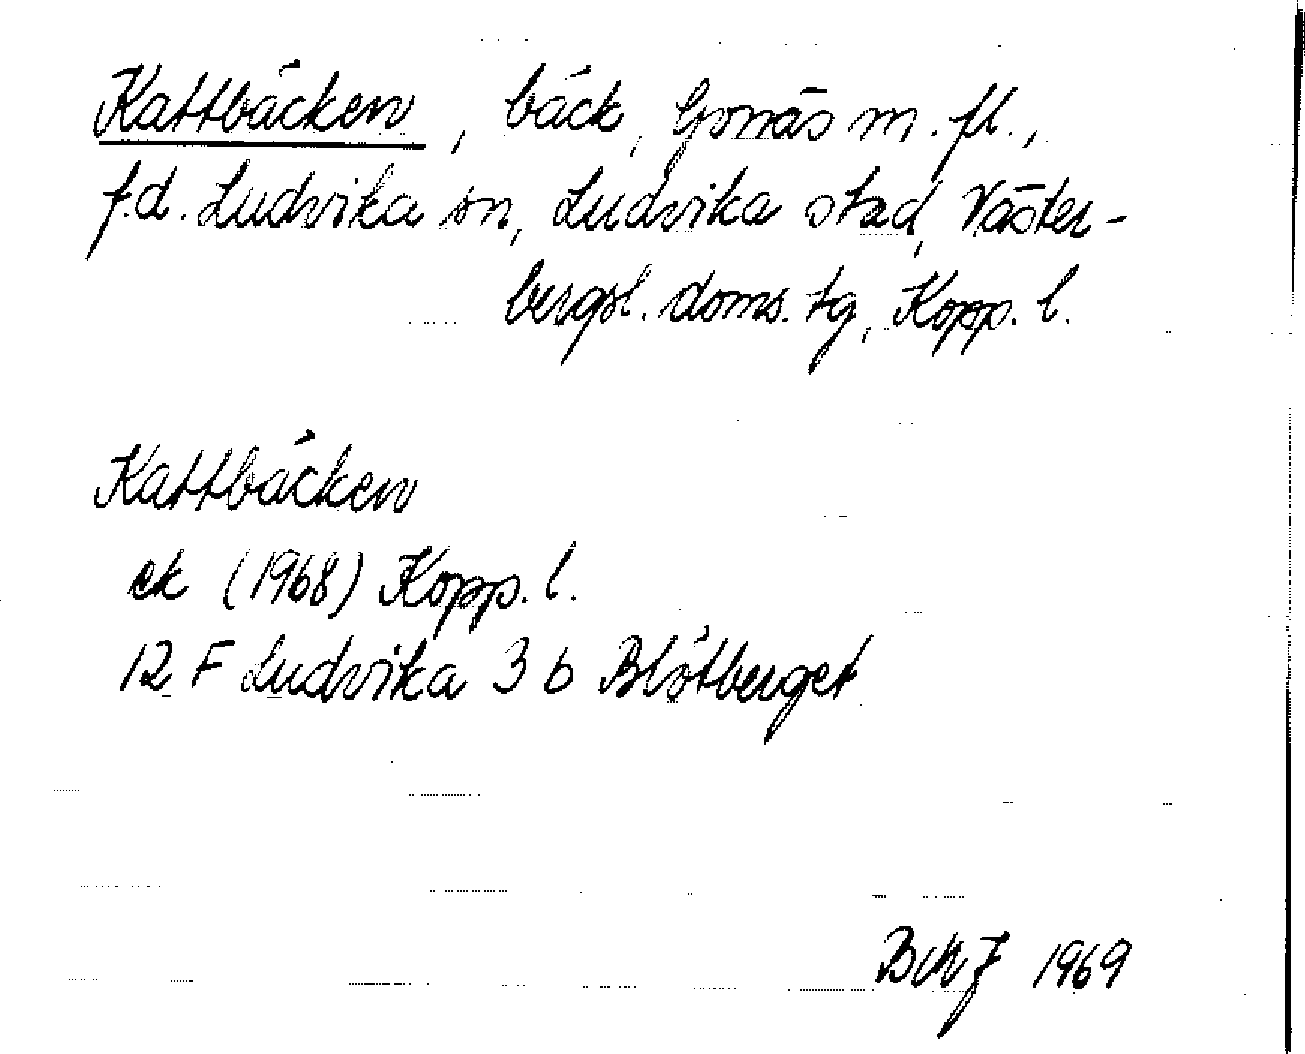 Kattbäcken, bäck, Gonäs m. fl.,
f.d. Ludvika sn, Ludvika stad, Väster-
bergsl. doms. tg, Kopp. l.
Kattbäcken
ek (1968) Kopp. l.
12 F Ludvika 3 b Blötberget
1969